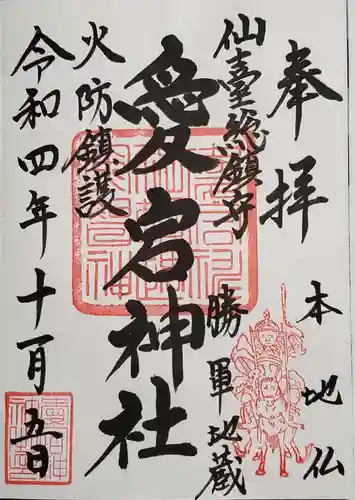 奉拝
本地仏
仙臺総鎮守
勝軍地蔵
愛宕神社
火防鎮護
令和四年十一月五日